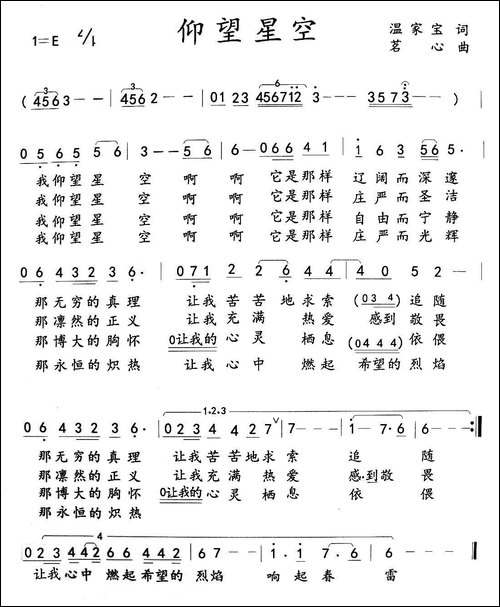 仰望星空
1=E 4/4
温家宝 词
茗心 曲
( 4563 — — 4562 — — | 01 23 456712 3 — — 3573 — — ) |
0 5 6 5 5 6 | 3 — — 5 5 6 | 6 — 0 6 6 4 1 | 1 6 3 5 6 5 · |
我仰望星 空 啊 啊 它是那样 辽阔而深邃
我仰望星 空 啊 啊 它是那样 庄严而圣洁
我仰望星 空 啊 啊 它是那样 自由而宁静
我仰望星 空 啊 啊 它是那样 庄严而光辉
0 6 4 3 2 3 6 · | 0 7 1 2 2 6 4 | 4 0 5 2 — |
那无穷的真理 让我苦苦地求索 (0 3 4) 追随
那凛然的正义 让我充满 热爱 感到敬畏
那博大的胸怀 0让我的心灵 栖息 (0 4 4 4) 依偎
那永恒的炽热 让我心中 燃起 希望的烈焰
1.2.3
0 6 4 3 2 3 6 · | 0 2 3 4 4 2 7 ∨ | 7 — — | 1 — 7 · 6 | 6 — — :||
那无穷的真理 让我苦苦地求索 追 随
那凛然的正义 让我充满 热爱 感到敬畏
那博大的胸怀 0让我的心灵栖息 依 偎
那永恒的炽热
4
0 2 3 4 4 2 6 6 4 4 2 | 6 7 — | 1 · 1 7 · 6 | 6 — — ||
让我心中 燃起希望的 烈焰 响起春 雷